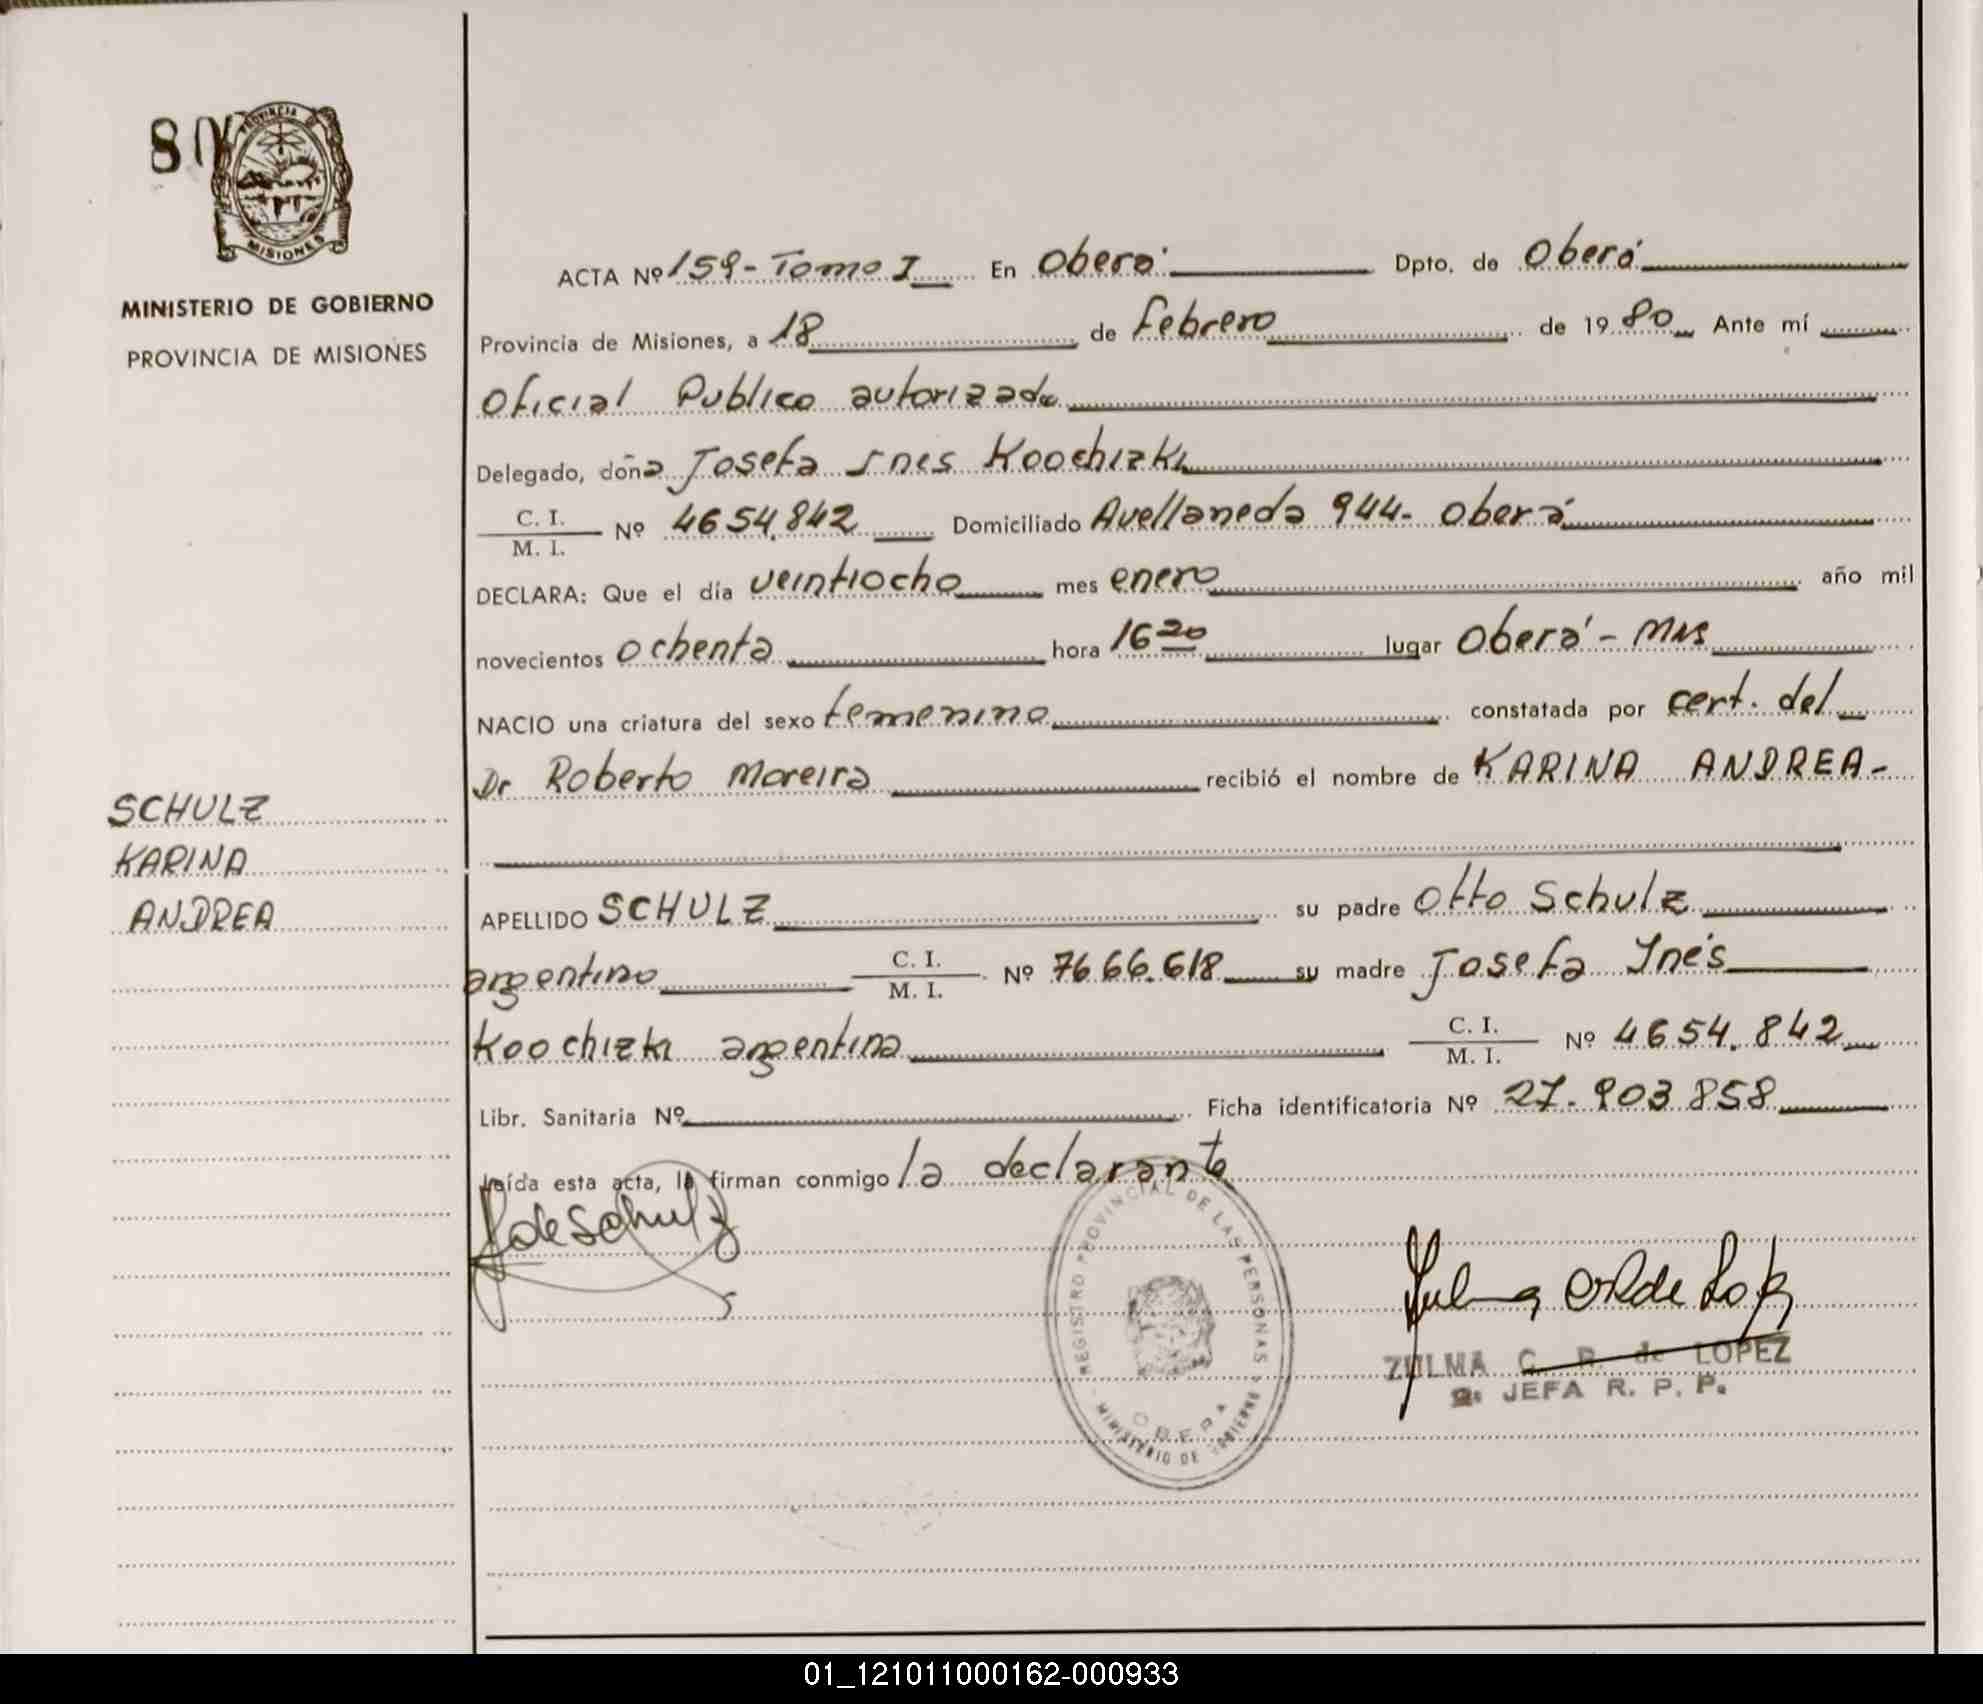 80
PROVINCIA DE MISIONES
MINISTERIO DE GOBIERNO
PROVINCIA DE MISIONES
SCHULZ
KARINA
ANDREA
ACTA Nº 159 - Tomo I En Oberá Dpto. de Oberá
Provincia de Misiones, a 18 de febrero de 1980 Ante mí
Oficial Publico autorizado
Delegado, doña Josefa Ines Koochizki
C. I. / M. I. Nº 4654.842 Domiciliado Avellaneda 944 - Oberá
DECLARA: Que el día veintiocho mes enero año mil
novecientos ochenta hora 16 20 lugar Oberá - Mns
NACIO una criatura del sexo femenino constatada por cert. del
Dr Roberto Moreira recibió el nombre de KARINA ANDREA-
APELLIDO SCHULZ su padre Otto Schulz
argentino C. I. / M. I. Nº 7666.618 su madre Josefa Inés
Koochizki argentina C. I. / M. I. Nº 4654.842
Libr. Sanitaria Nº Ficha identificatoria Nº 27.903858
Leída esta acta, la firman conmigo la declarante
J de Schulz
REGISTRO PROVINCIAL DE LAS PERSONAS
MINISTERIO DE GOBIERNO
OBERA
Zulma de Lopez
ZULMA C. R. de LOPEZ
2. JEFA R. P. P.
01_121011000162-000933